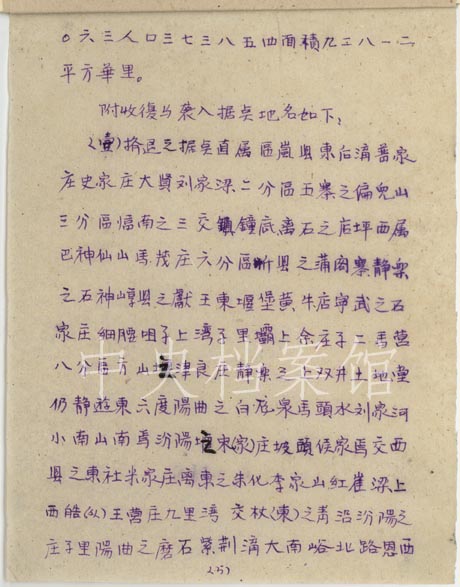 〇六三人口三七三八五四面積九二八一·二
平方華里。
附收復与袭入据奌地名如下：
(壹)擠退之据奌直属區嵐县東后溝普家
庄史家庄大賢刘家梁二分區五寨之偏児山
三分區臨南之三交鎮鐘底离石之店坪西属
巴神仙山馬茂庄六分區忻县之蒲阁寨静樂
之石神崞县之献王東堰堡黄牛店寧武之石
家庄細腰咀子上湾子里壩上余庄子二馬营
八分區方山津良庄静樂三上双井土地堂
仍静遊東六度陽曲之白庄泉馬頭水刘家河
小南山南焉汾陽宋(家)庄坡頭侯家焉交西
县之東社米家庄离東之朱化李家山紅崔梁上
西皓(以)王营庄九里湾交杖(東)之青沿汾陽之
庄子里陽曲之磨石紫荆溝大南峪北路恩西
(25)
中央档案馆